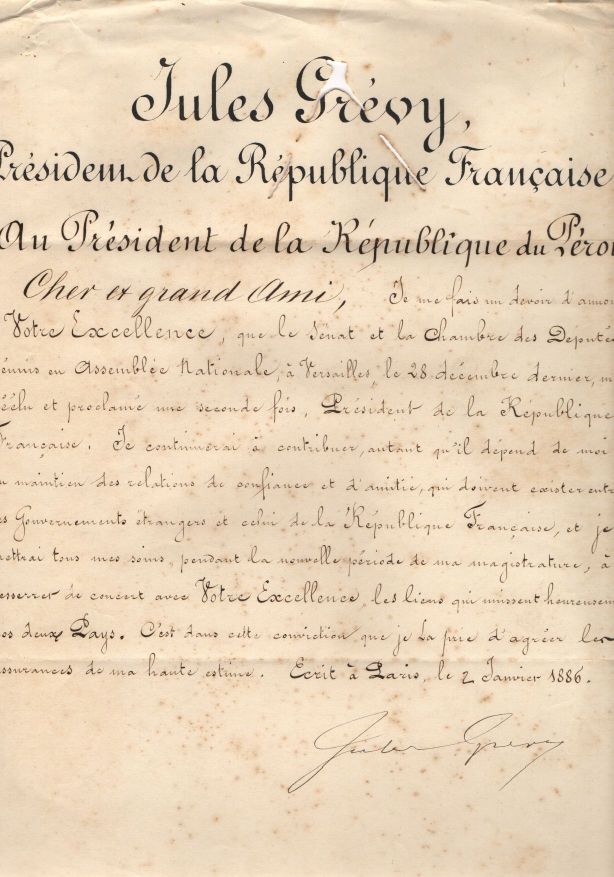 Jules Grévy,
Président de la République Française
Au Président de la République du Pérou
Cher et grand Ami, Je me fais un devoir d'annon
Votre Excellence, que le Sénat et la Chambre des Députés
éunis en Assemblée Nationale, à Versailles, le 28 décembre dernier, m
éélu et proclamé une seconde fois, Président de la République
Française. Je continuerai à contribuer, autant qu'il dépend de moi
u maintien des relations de confiance et d'amitié, qui doivent exister entr
es Gouvernements étrangers et celui de la République Française, et je
mettrai tous mes soins, pendant la nouvelle période de ma magistrature, à
resserrer de concert avec Votre Excellence, les liens qui unissent heureusem
nos deux Pays. C'est dans cette conviction que je La prie d'agréer les
assurances de ma haute estime. Ecrit à Paris, le 2 Janvier 1886.
Jules Grévy